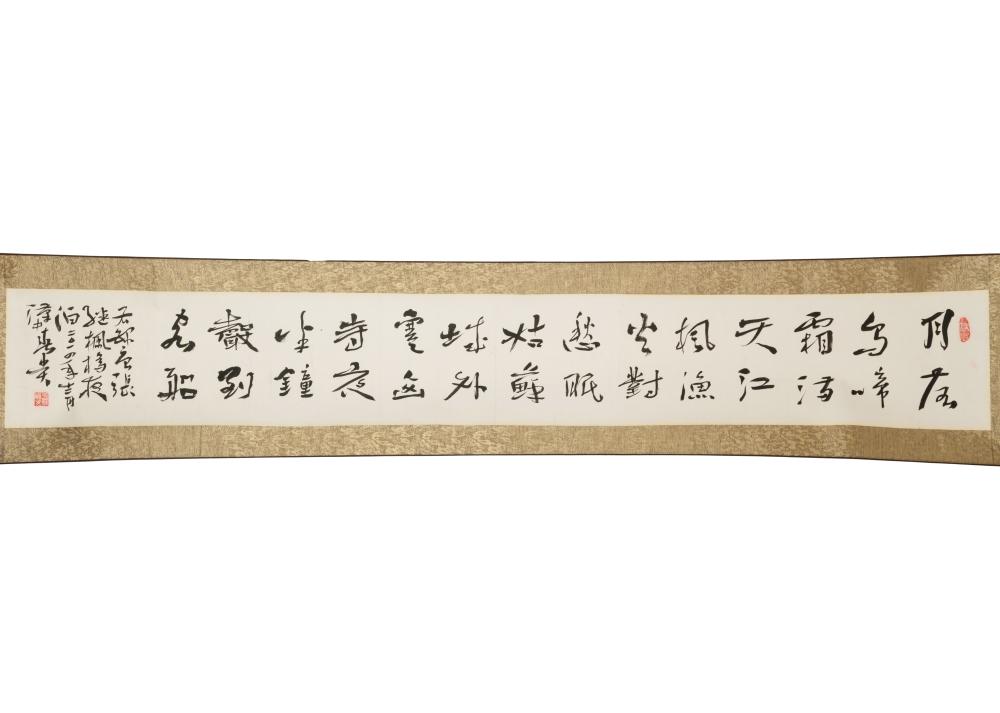 月落
烏啼
霜滿
天江
楓漁
火對
愁眠
姑蘇
城外
寒山
寺夜
半鐘
聲到
客船
右録唐張
繼楓橋夜
泊